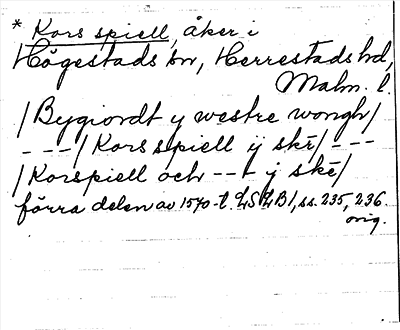 * Kors spiell, åker i
Högestads sn, Herrestads hd,
Malm. l.
/Bygiordt y westre wongh/
---/Kors spiell ij skē/---
/Korspiell och --- j skē/
förra delen av 1570-t. LSLB1, ss. 235, 236.
orig.